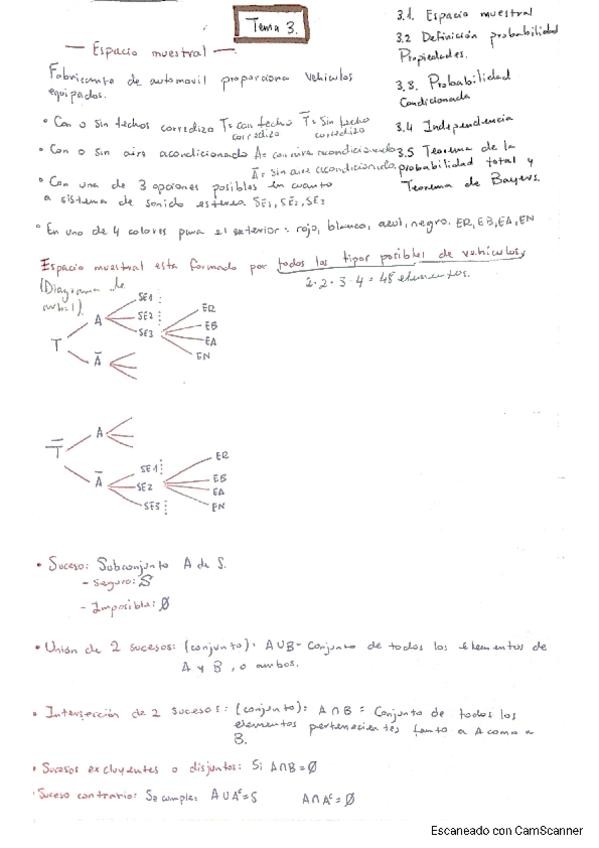 Tema 3.
3.1. Espacio muestral
3.2 Definición probabilidad
Propiedades.
3.3. Probabilidad
Condicionada
3.4 Independencia
3.5 Teorema de la
probabilidad total y
Teorema de Bayers.
— Espacio muestral —
Fabricante de automovil proporciona vehiculos
equipados.
• Con o sin techos corredizo T = con techo T̅ = Sin techo
corredizo corredizo
• Con o sin aire acondicionado A = con aire acondicionado
A̅ = sin aire acondicionado
• Con una de 3 opciones posibles en cuanto
a sistema de sonido estereo SE1, SE2, SE3
• En uno de 4 colores para el exterior: rojo, blanco, azul, negro. ER, EB, EA, EN
Espacio muestral esta formado por todos los tipos posibles de vehiculos,
2·2·3·4 = 48 elementos.
(Diagrama de
arbol).
T
A
SE1
SE2
SE3
ER
EB
EA
EN
A̅
T̅
A
A̅
SE1
SE2
SE3
ER
EB
EA
EN
• Suceso: Subconjunto A de S.
- Seguro: S
- Imposible: ∅
• Unión de 2 sucesos: (conjunto): A∪B = Conjunto de todos los elementos de
A y B, o ambos.
• Intersección de 2 sucesos: (conjunto): A∩B = Conjunto de todos los
elementos pertenecientes tanto a A como a
B.
• Sucesos excluyentes o disjuntos: Si A∩B = ∅
• Suceso contrario: Se cumple: A∪Aᶜ = S A∩Aᶜ = ∅
Escaneado con CamScanner